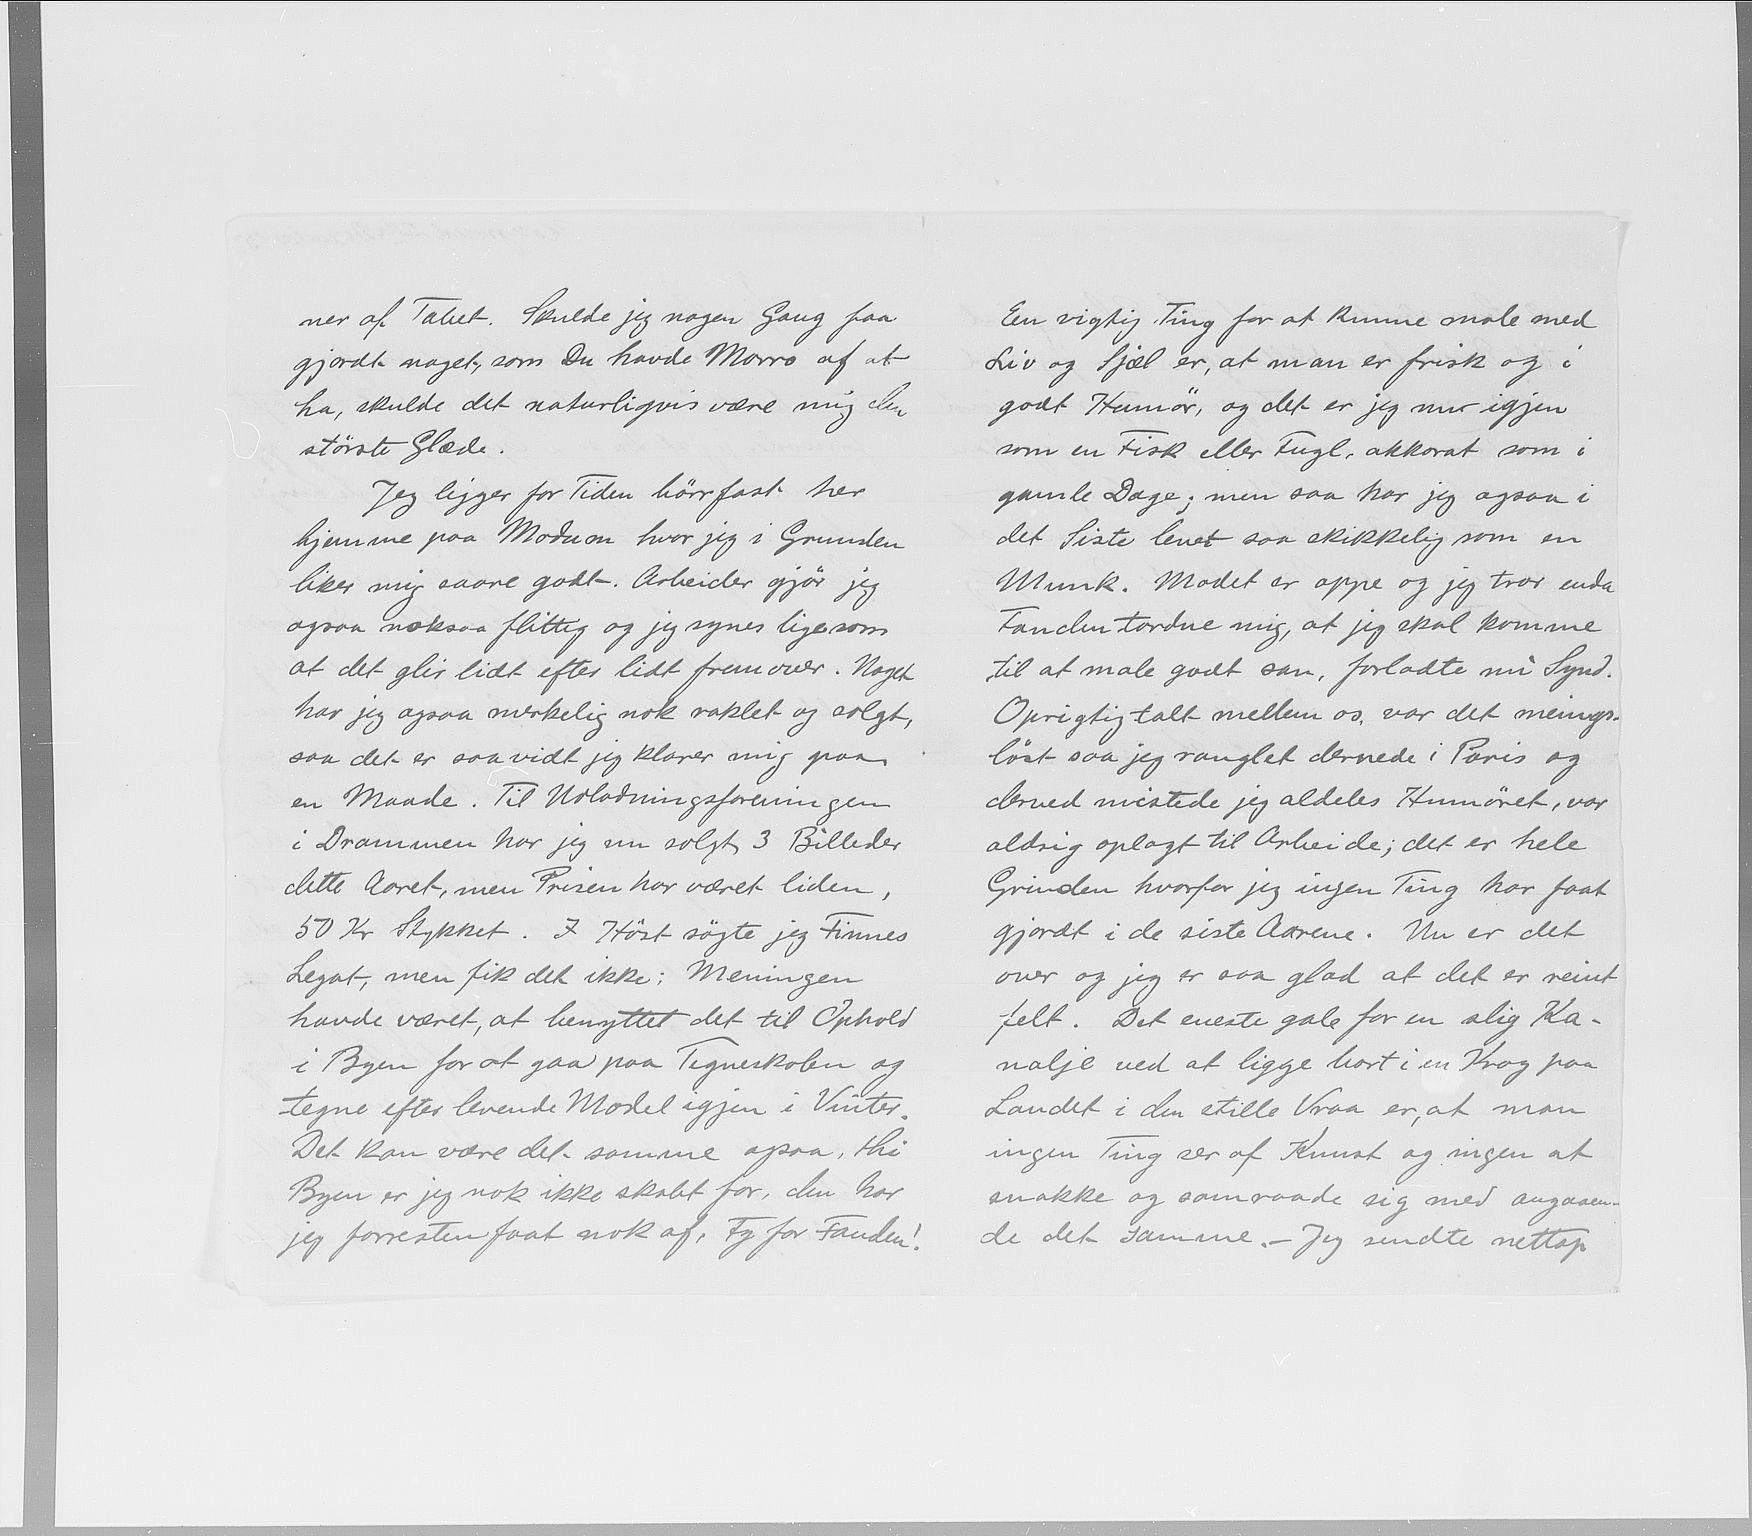 ner af Tabet. Skulde jeg nogen Gang faa
gjordt noget, som Du havde Morro af at
ha, skulde det naturligvis være mig den
störste Glæde.
Jeg ligger for Tiden börrfast her
hjemme paa Modum hvor jeg i Grunden
liker mig saare godt. Arbeider gjör jeg
ogsaa noksaa flittig og jeg synes ligesom
at det glir lidt efter lidt fremover. Noget
har jeg ogsaa merkelig nok raklet og solgt,
saa det er saavidt jeg klarer mig paa
en Maade. Til Udlodningsforeningen
i Drammen har jeg nu solgt 3 Billeder
dette Aaret, men Prisen har været liden,
50 Kr Stykket. I Höst sögte jeg Finnes
Legat, men fik det ikke; Meningen
havde været, at benyttet det til Ophold
i Byen for at gaa paa Tegneskolen og
tegne efter levende Model igjen i Vinter.
Det kan være det samme ogsaa, thi
Byen er jeg nok ikke skabt for, den har
jeg forresten faat nok af, Fy for Fanden!
Een vigtig Ting for at kunne male med
Liv og Sjæl er, at man er frisk og i
godt Humör, og det er jeg nu igjen
som en Fisk eller Fugl, akkorat som i
gamle Dage; men saa har jeg ogsaa i
det Siste levet saa skikkelig som en
Munk. Modet er oppe og jeg tror enda
Fanden tordne mig, at jeg skal komme
til at male godt san, forladte mi Synd.
Oprigtig talt mellem os, var det menings-
löst saa jeg ranglet dernede i Paris og
derved mistede jeg aldeles Humöret, var
aldrig oplagt til Arbeide; det er hele
Grinden hvorfor jeg ingen Ting har faat
gjordt i de siste Aarene. Nu er det
over og jeg er saa glad at det er reint
felt. Det eneste gale for en slig Ka-
nalje ved at ligge bort i en Krog paa
Landet i den stille Vraa er, at man
ingen Ting ser af Kunst og ingen at
snakke og samraade sig med angaaen-
de det samme. – Jeg sendte nettop